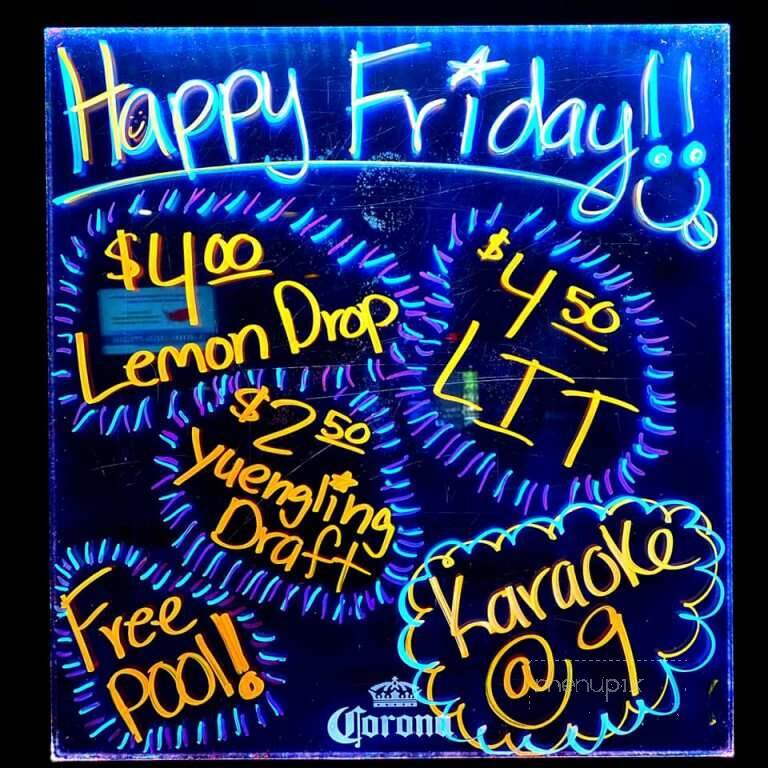 Happy Friday!!
$4.00
Lemon Drop
$4.50
LIT
$2.50
Yuengling
Draft
Free
Pool!
Karaoke
@ 9
Corona
menupix